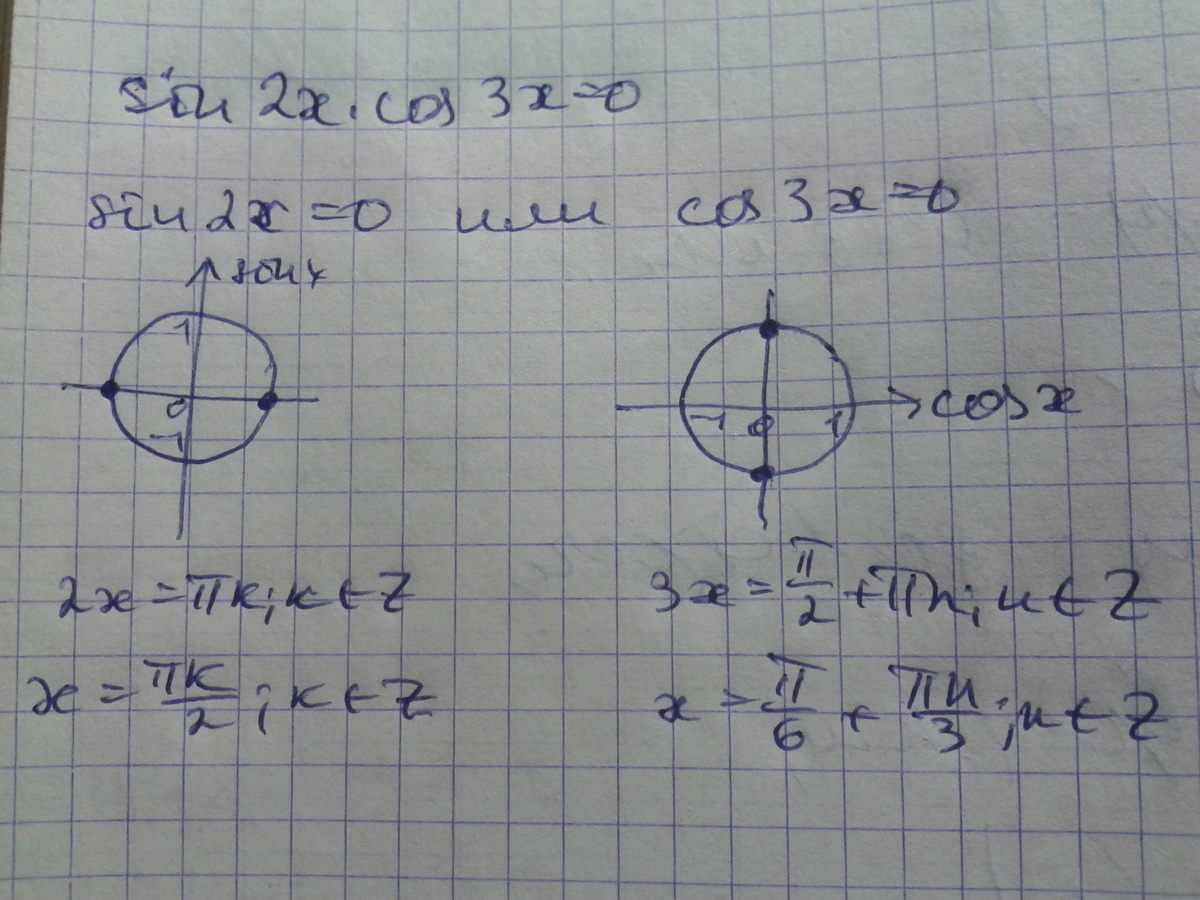 sin 2x · cos 3x = 0
sin 2x = 0 или cos 3x = 0
sin x
1
0
-1
cos x
-1 0 1
2x = πk; k ∈ Z
3x = π/2 + πn; n ∈ Z
x = πk/2; k ∈ Z
x = π/6 + πn/3; n ∈ Z